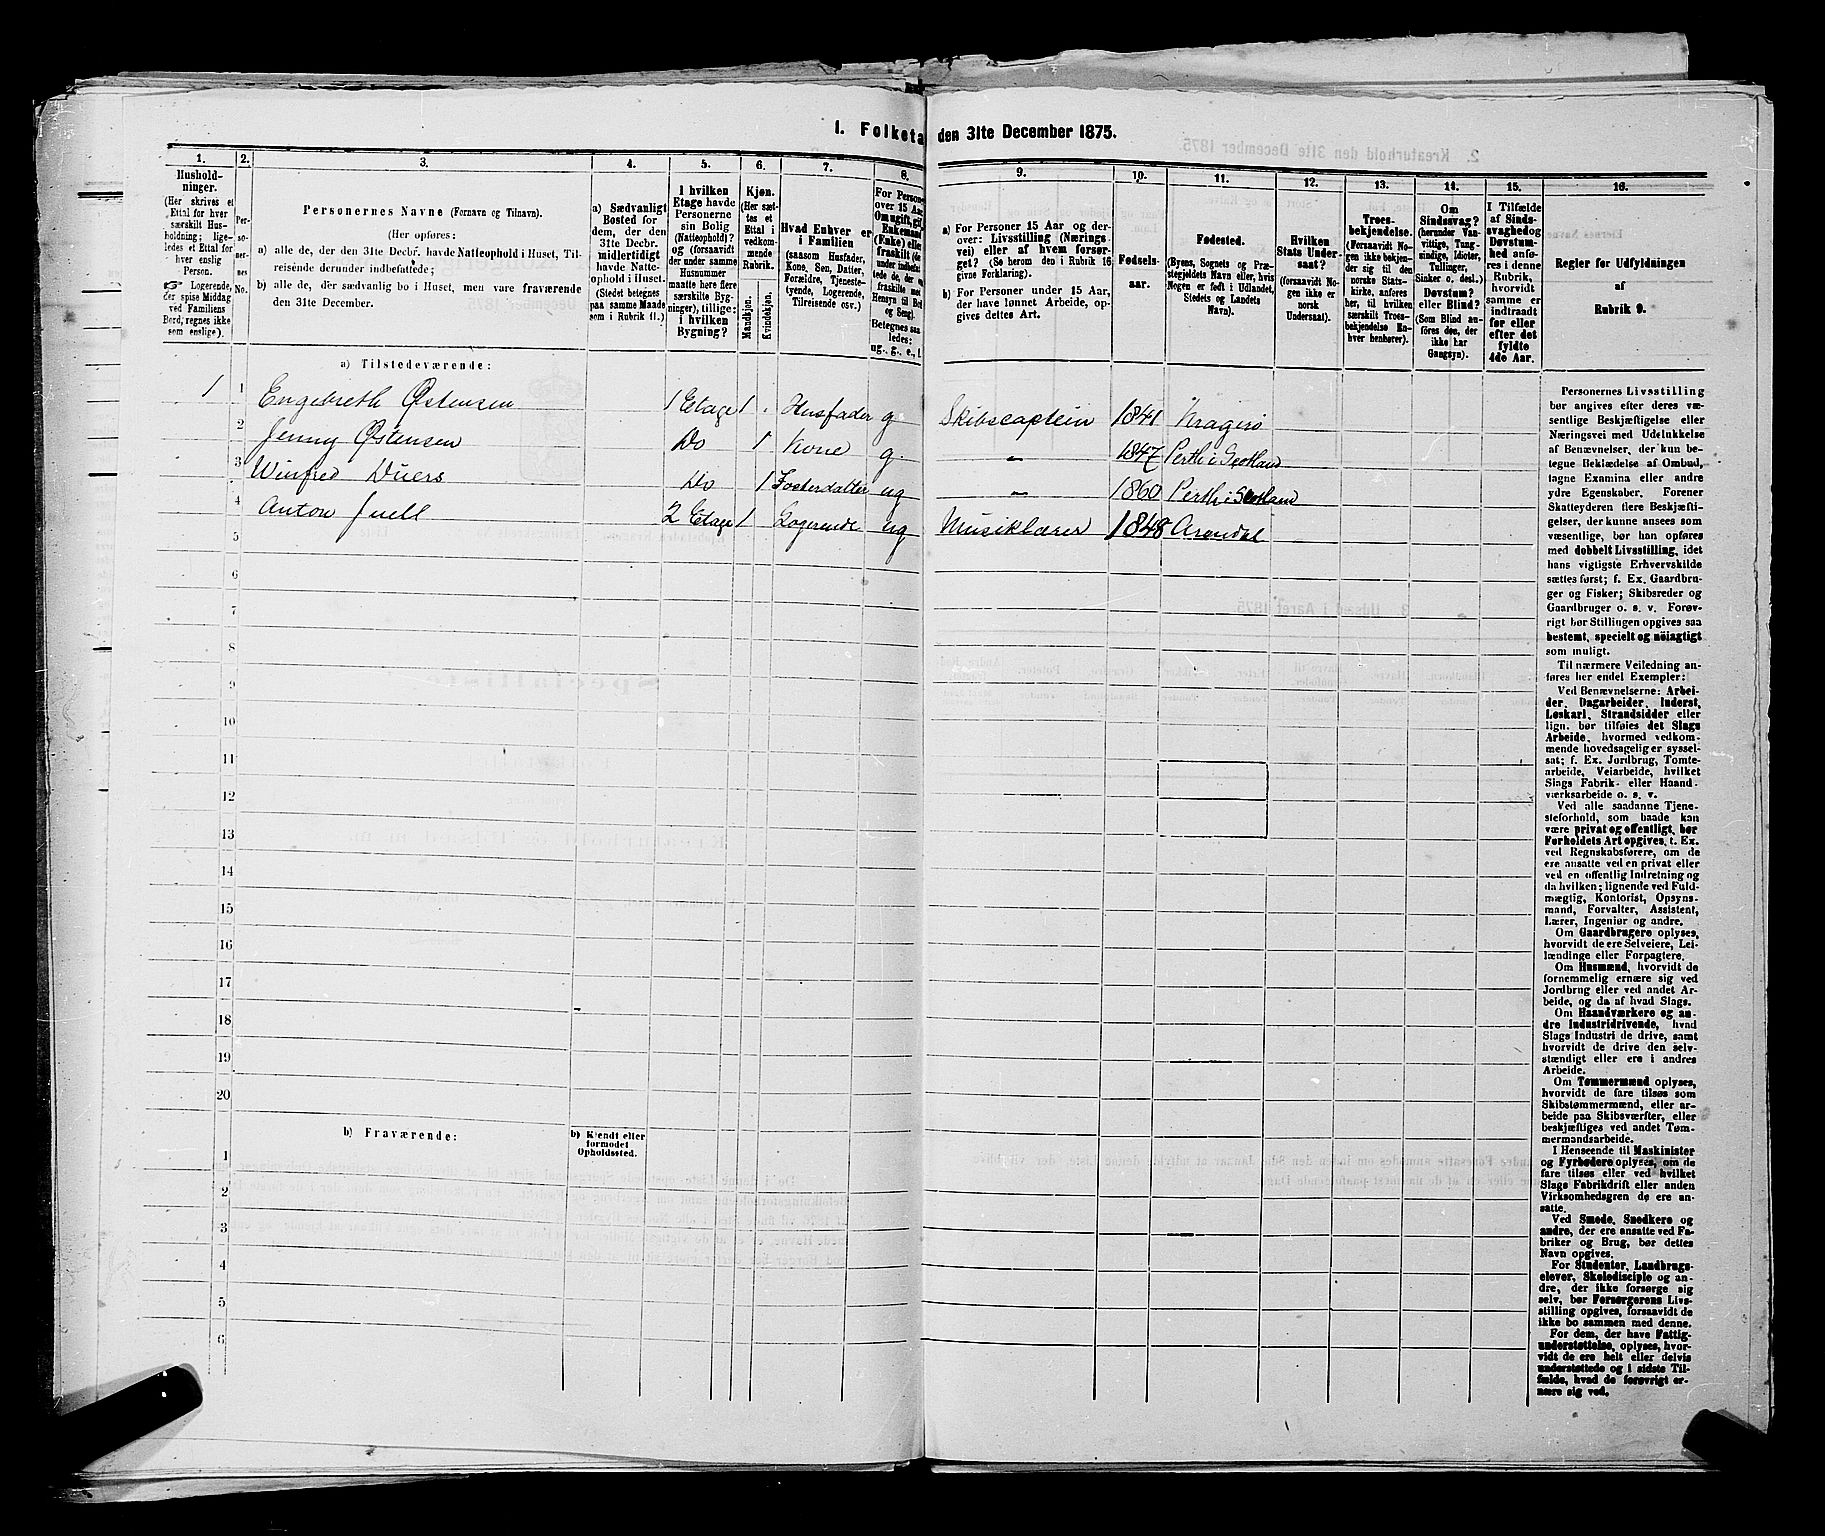 1. Folketa den 31te December 1875.
1.
2.
3.
4.
5.
6.
7.
8.
9.
10.
11.
12.
13.
14.
15.
16.
Hushold-
ninger.
(Her skrives et
Ettal for hver
særskilt Hus-
holdning; lige-
ledes et Ettal for
hver enslig
Person.
Logerende,
der spise Middag
ved Familiens
Bord, regnes ikke
som enslige).
Per-
so-
ner-
nes
No.
Personernes Navne (Fornavn og Tilnavn).
(Her opføres:
a) alle de, der den 31te Decbr. havde Natteophold i Huset, Til-
reisende derunder indbefattede;
b) alle de, der sædvanlig bo i Huset, men vare fraværende
den 31te December.
a) Sædvanligt
Bosted for
dem, der den
31te Decbr.
midlertidigt
havde Natte-
ophold i Huset.
(Stedet betegnes
paa samme Maade
som i Rubrik 11.)
I hvilken
Etage havde
Personerne
sin Bolig
(Natteophold)?
og (forsaavidt
der under samme
Husnummer
maatte høre flere
særskilte Byg-
ninger), tillige:
i hvilken
Bygning?
Kjøn.
(Her sæt-
tes et
Ettal i
vedkom-
mende
Rubrik.
Mandkjøn.
Kvindekjøn.
Hvad Enhver er
i Familien
(saasom Husfader,
Kone, Søn, Datter,
Forældre, Tjeneste-
tyende, Logerende,
Tilreisende osv.)
For Persone
over 15 Aar
Om ugift, gif
Enkemand
(Enke) eller
fraskilt (de
under indbefat-
tede de, der er
fraskilte med
Hensyn til Bo
og Seng).
Betegnes saa
ledes:
ug., g., e., f.
a) For Personer 15 Aar og der-
over: Livsstilling (Nærings-
vei) eller af hvem forsør-
get? (Se herom den i Rubrik 16
givne Forklaring).
b) For Personer under 15 Aar,
der have lønnet Arbeide, op-
gives dettes Art.
Fødsels-
aar.
Fødested.
(Byens, Sognets og Præ-
stegjeldets Navn eller, hvis
Nogen er født i Udlandet,
Stedets og Landets
Navn).
Hvilken
Stats Under-
saat?
(forsaavidt No-
gen ikke er
norsk
Undersaat).
Troes-
bekjendelse.
(Forsaavidt No-
gen ikke bekjen-
der sig til den
norske Stats-
kirke, anføres
her, til hvilken
særskilt Troes-
bekjendelse En-
hver henhører).
Om
Sindssvag?
(herunder Van-
vittige, Tung-
sindige, Idioter,
Tullinger,
Sinker o. desl.)
Døvstum?
eller Blind?
(Som Blind an-
føres de, der
ikke har
Gangsyn).
I Tilfælde
af Sinds-
svaghed og
Døvstum-
hed anfø-
res i denne
Rubrik,
hvorvidt
samme er
indtraadt
før eller
efter det
fyldte
4de Aar.
Regler for Udfyldningen
af
Rubrik 9.
a) Tilstedeværende:
1 1 Engebreth Østensen 1 Etage 1 Husfader g Skibscaptein 1841 Kragerø
2 Jenny Østensen Do 1 Kone g - 1847 Perth i Scotland
3 Winfred Duers Do 1 Fosterdatter ug - 1860 Perth i Scotland
4 Anton Juell 2 Etage 1 Logerende ug Musiklærer 1848 Arendal
5
6
7
8
9
10
11
12
13
14
15
16
17
18
19
20
b) Fraværende:
b) Kjendt eller
formodet
Opholdssted.
1
2
3
4
5
6
Personernes Livsstilling
bør angives efter deres væ-
sentlige Beskjæftigelse eller
Næringsvei med Udelukkelse
af Benævnelser, der kun be-
tegne Beklædelse af Ombud,
tagne Examina eller andre
ydre Egenskaber. Forener
Skatteyderen flere Beskjæfti-
gelser, der kunne ansees som
væsentlige, bør han opføres
med dobbelt Livsstilling, idet
hans vigtigste Erhvervskilde
sættes først; f. Ex. Gaardbru-
ger og Fisker; Skibsreder og
Gaardbruger o. s. v. Forøv-
rigt bør Stillingen opgives saa
bestemt, specielt og nøiagtigt
som muligt.
Til nærmere Veiledning an-
føres her endel Exempler:
Ved Benævnelserne: Arbei-
der, Dagarbeider, Inderst,
Løskarl, Strandsidder eller
lign. bør tilføies det Slags
Arbeide, hvormed vedkom-
mende hovedsagelig er syssel-
sat; f. Ex. Jordbrug, Tomte-
arbeide, Veiarbeide, hvilket
Slags Fabrik- eller Haand-
værksarbeide o. s. v.
Ved alle saadanne Tjene-
steforhold, som baade kan
være privat og offentligt, bør
Forholdets Art opgives, f. Ex.
ved Regnskabsførere, om de
ere ansatte ved en privat eller
ved en offentlig Indretning og
da hvilken; lignende ved Fuld-
mægtig, Kontorist, Opsyns-
mand, Forvalter, Assistent,
Lærer, Ingeniør og andre.
Om Gaardbrugere oplyses,
hvorvidt de ere Selveiere, Lei-
lændinge eller Forpagtere.
Om Husmænd, hvorvidt de
fornemmelig ernære sig ved
Jordbrug eller ved andet Ar-
beide, og da af hvad Slags.
Om Haandværkere og an-
dre Industridrivende, hvad
Slags Industri de drive, samt
hvorvidt de drive den selv-
stændigt eller ere i andres
Arbeide.
Om Tømmermænd oplyses,
hvorvidt de fare tilsøs som
Skibstømmermænd, eller ar-
beide paa Skibsværfter, eller
beskjæftiges ved andet Tøm-
mermandsarbeide.
I Henseende til Maskinister
og Fyrbødere oplyses, om de
fare tilsøs eller ved hvilket
Slags Fabrikdrift eller anden
Virksomhedsgren de ere an-
satte.
Ved Smede, Snedkere og
andre, der ere ansatte ved Fa-
briker og Brug, bør dettes
Navn opgives.
For Studenter, Landbrugs-
elever, Skoledisciple og an-
dre, der ikke forsørge sig
selv, bør Forsørgerens Livs-
stilling opgives, forsaavidt de
ikke bo sammen med denne.
For dem, der have Fattig-
understøttelse, oplyses, hvor-
vidt de ere helt eller delvis
understøttede og i sidste Til-
fælde, hvad de forøvrigt er-
nære sig ved.